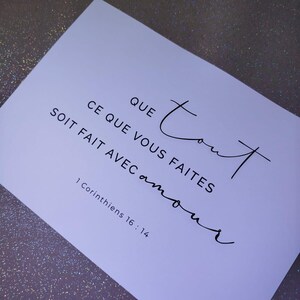 QUE tout
CE QUE VOUS FAITES
SOIT FAIT AVEC amour
1 Corinthiens 16 : 14